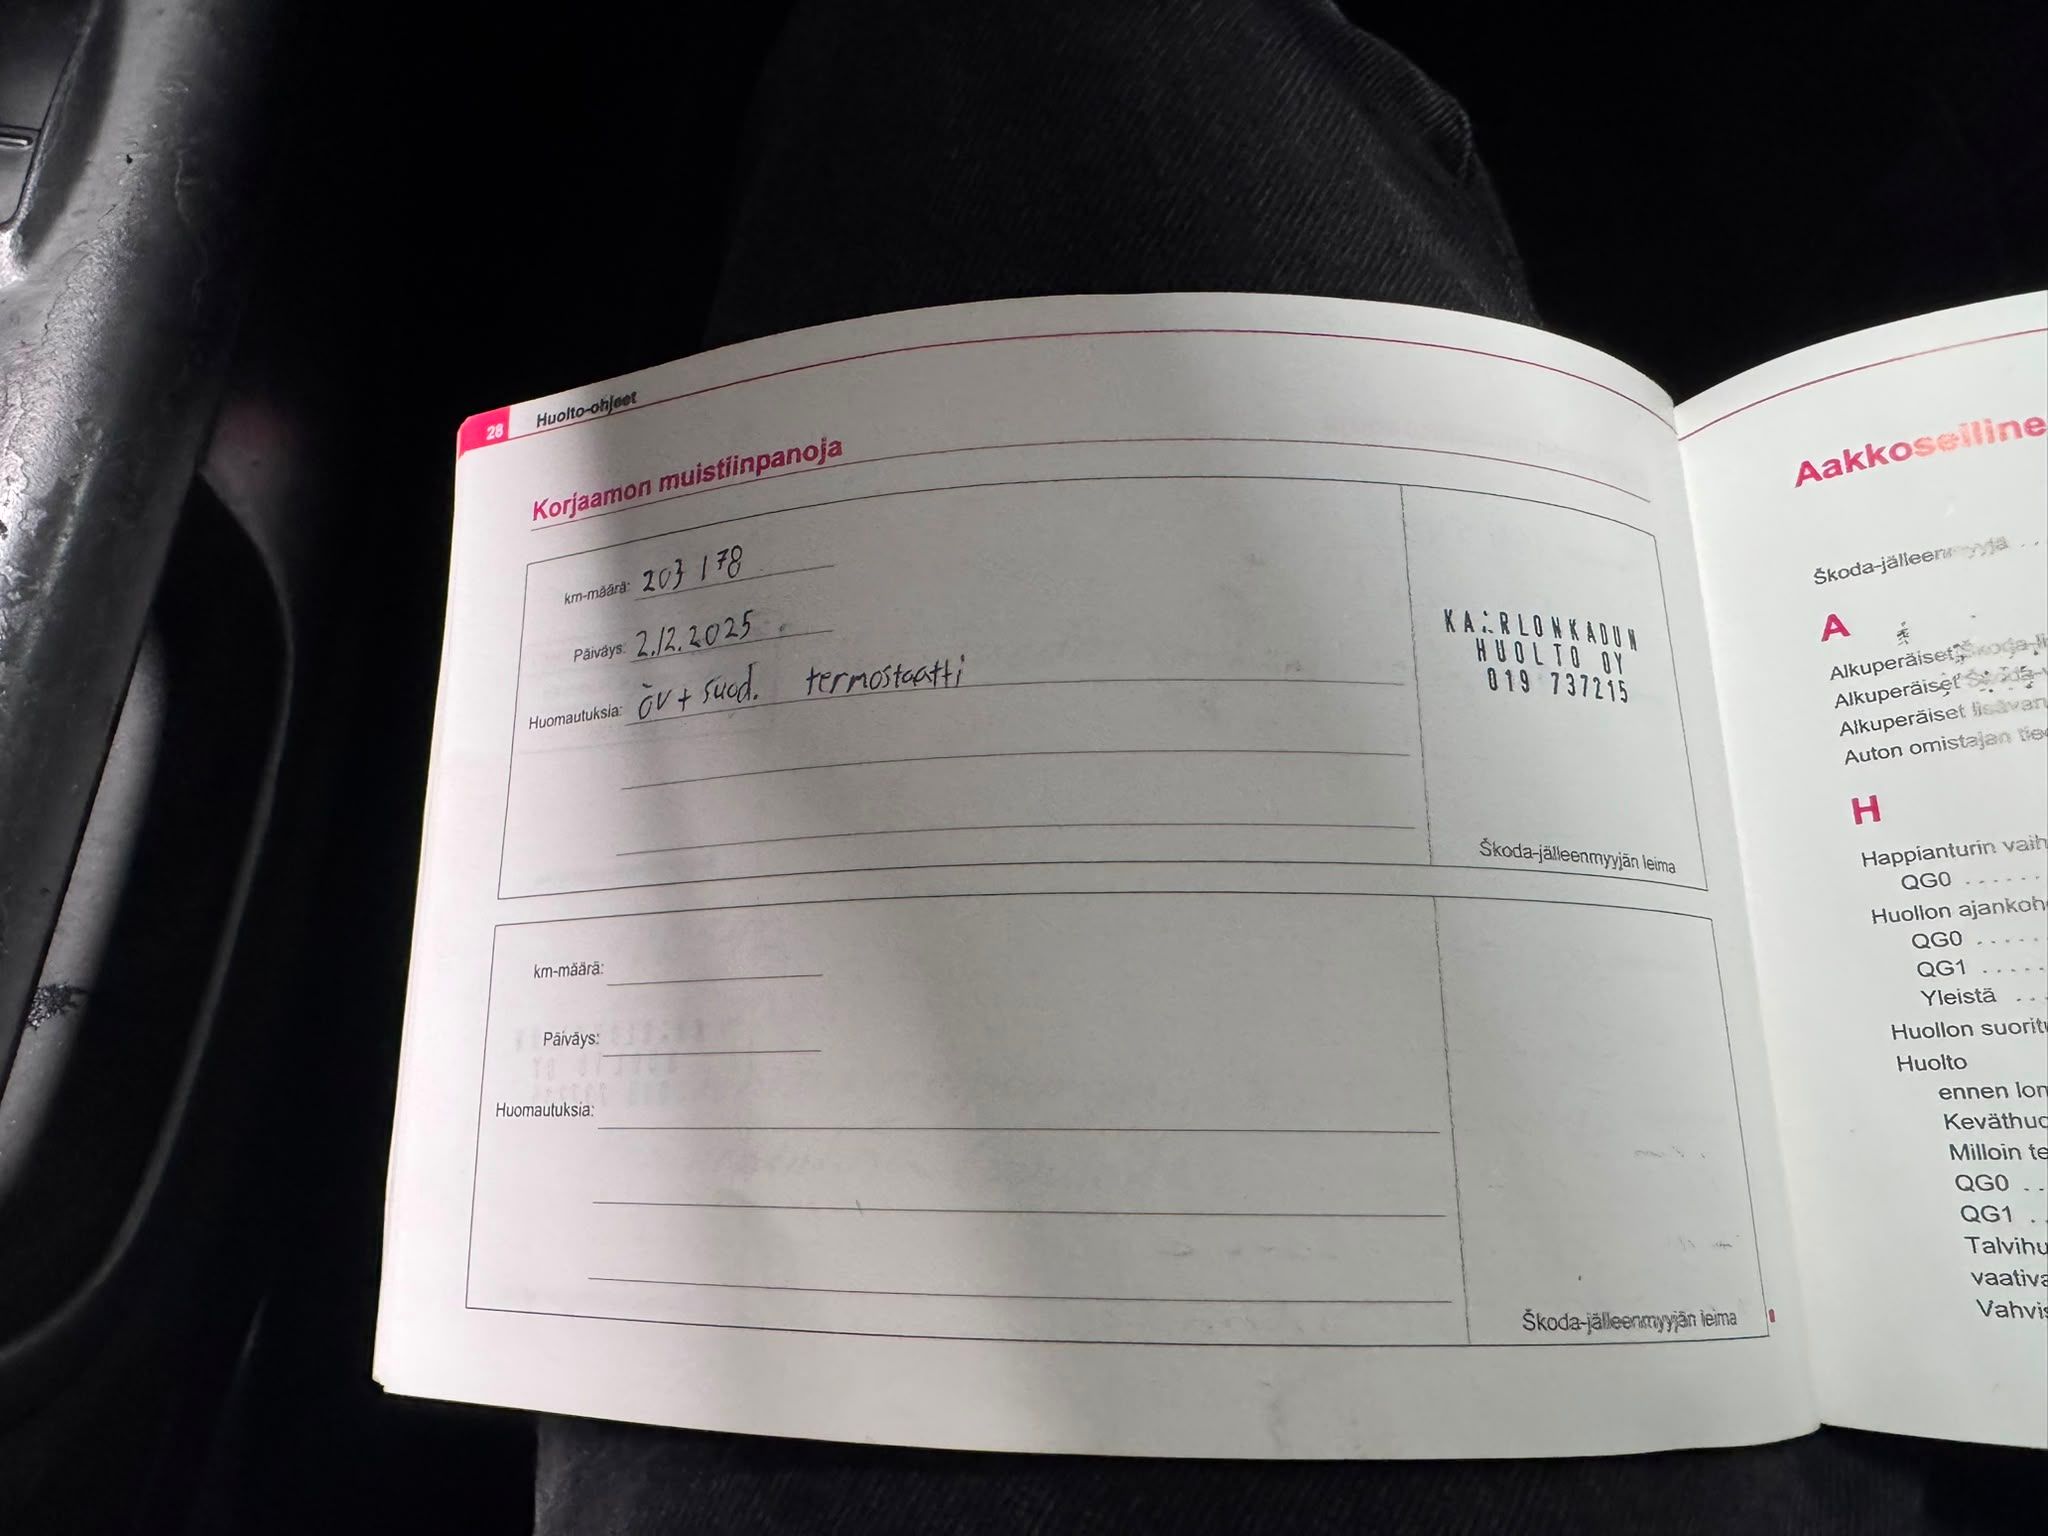 28 Huolto-ohjeet
Korjaamon muistiinpanoja
km-määrä: 203 178
Päiväys: 2.12.2025
Huomautuksia: öv + suod. termostaatti
KA:RLONKADUN
HUOLTO OY
019 737215
Škoda-jälleenmyyjän leima
km-määrä:
Päiväys:
Huomautuksia:
Škoda-jälleenmyyjän leima
Aakkoselline
Škoda-jälleenmyyjä . .
A
Alkuperäiset Škoda-li
Alkuperäiset Škoda-v
Alkuperäiset lisävaru
Auton omistajan tied
H
Happianturin vaih
QG0 . . . . . .
Huollon ajankoh
QG0 . . . . .
QG1 . . . . .
Yleistä . . .
Huollon suoritu
Huolto
ennen lom
Keväthuo
Milloin te
QG0 . .
QG1 . .
Talvihu
vaativa
Vahvis